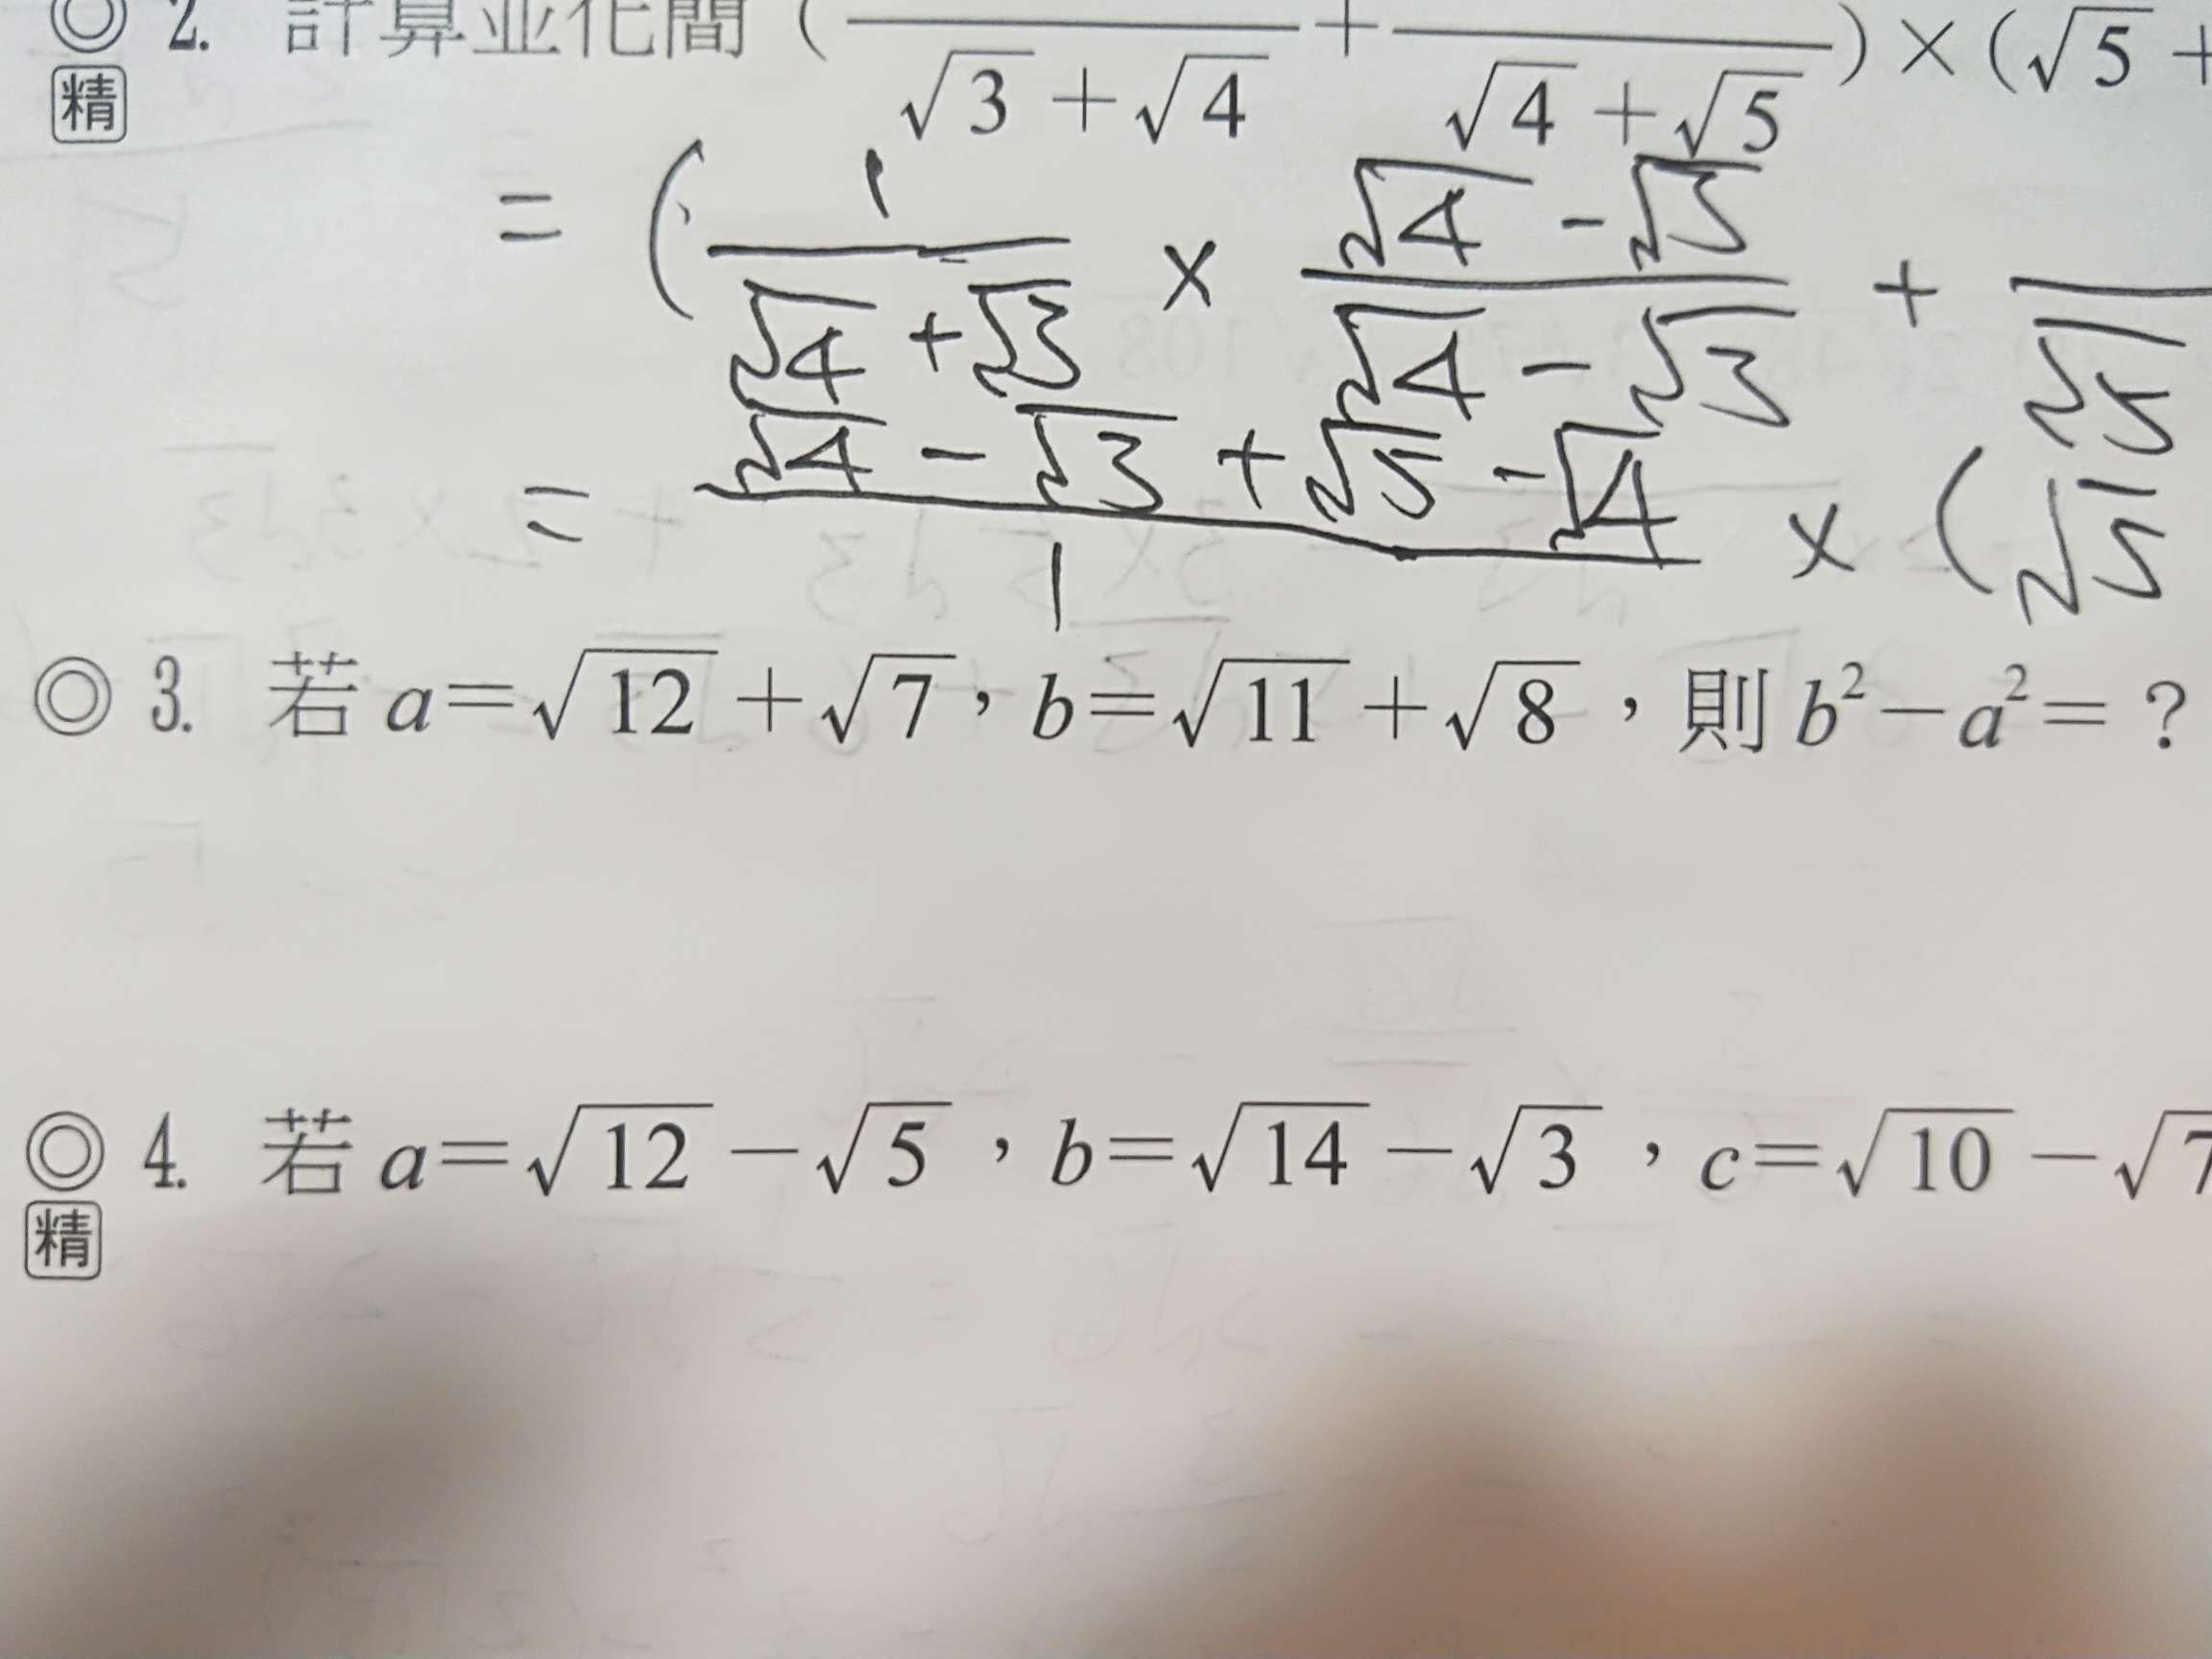 ◎ 2. 計算並化簡 ( —/(√3 + √4) + —/(√4 + √5) ) × (√5 +
精
= ( 1/(√4 + √3) × (√4 - √3)/(√4 - √3) + —/√5
= (√4 - √3 + √5 - √4)/1 × (√5
◎ 3. 若 a=√12+√7,b=√11+√8,則 b²-a²=?
◎ 4. 若 a=√12-√5,b=√14-√3,c=√10-√7
精